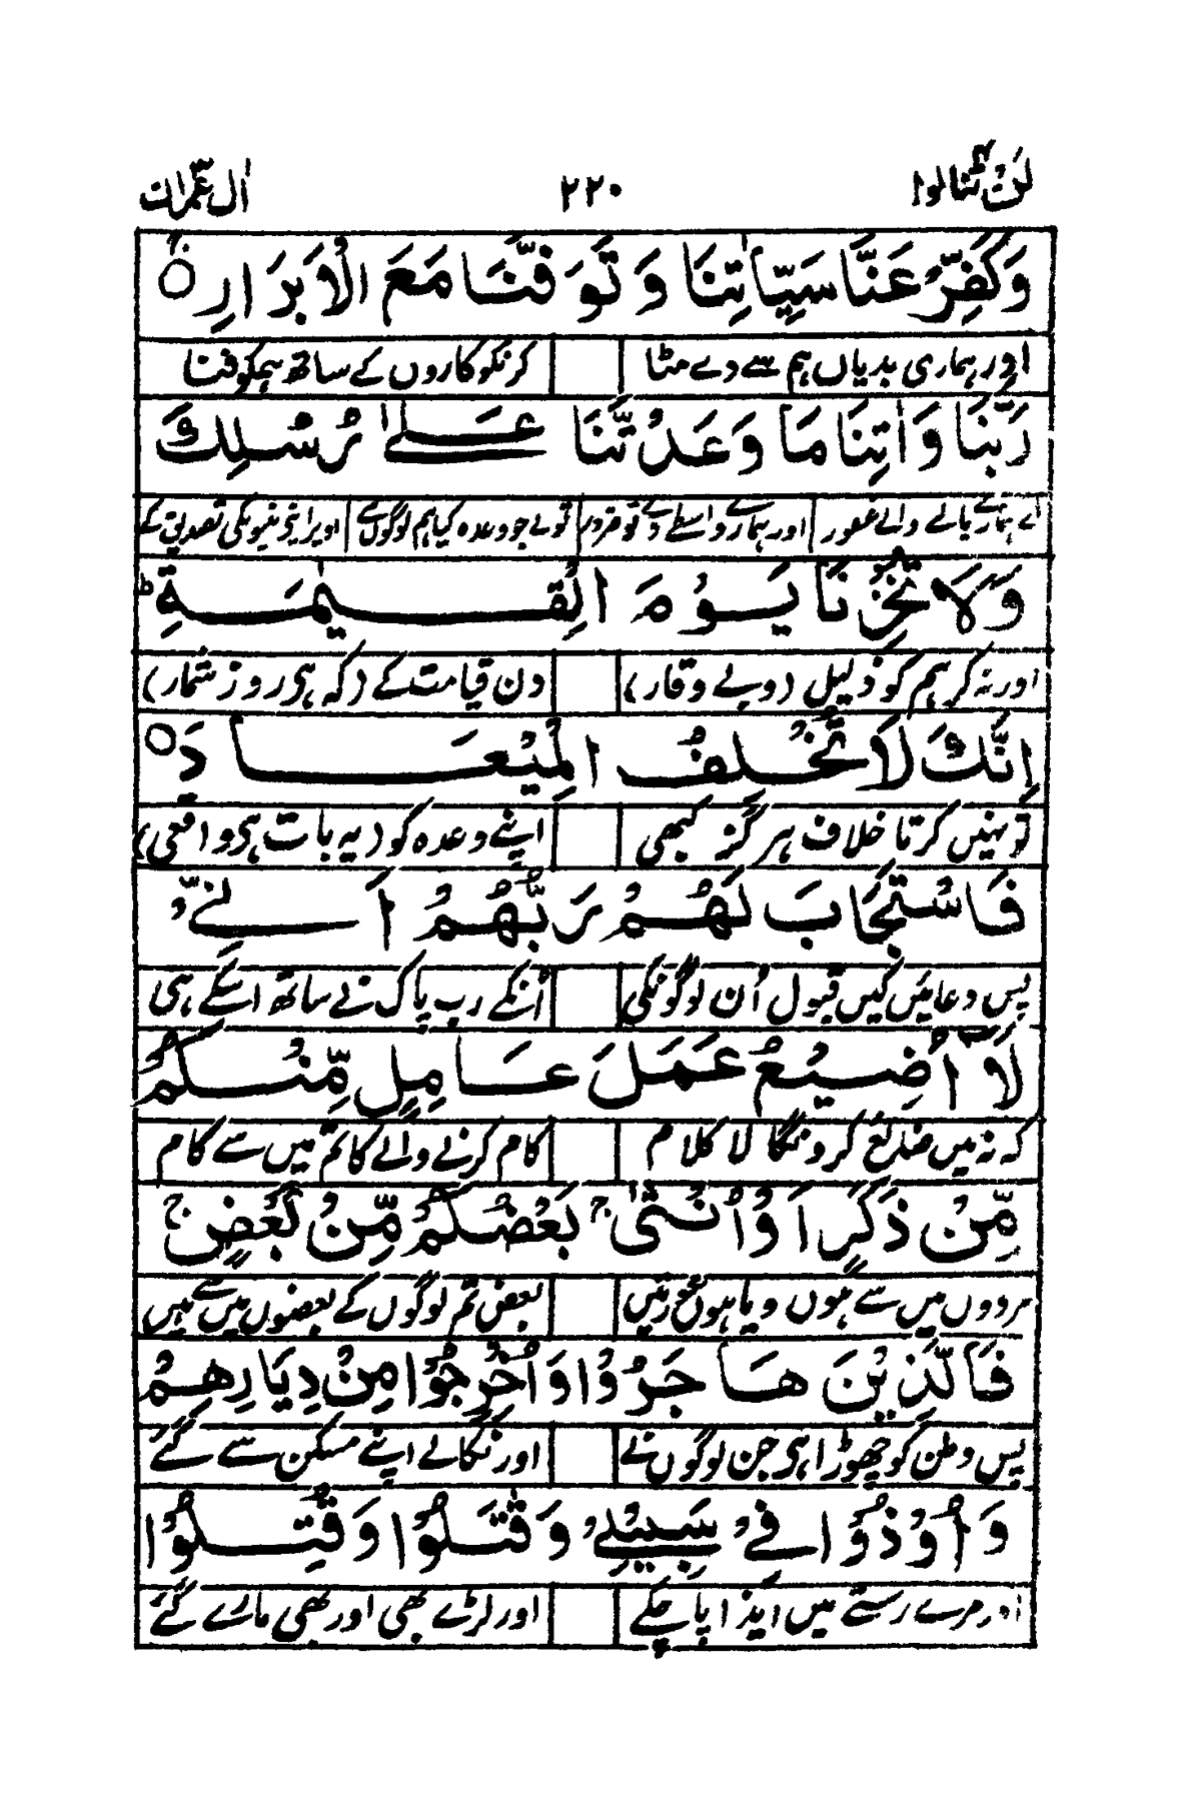 لَنْ تَنَالُوا ۲۲۰ اٰلِ عِمْرَان
وَكَفِّرْ عَنَّا سَيِّاٰتِنَا وَتَوَفَّنَا مَعَ الْاَبْرَارِ ۚ
اور ہماری بدیاں ہم سے دے مٹا کر نکوکاروں کے ساتھ ہمکو فنا
رَبَّنَا وَاٰتِنَا مَا وَعَدْتَّنَا عَلٰى رُسُلِكَ
اے ہمارے پالنے والے غفور اور ہمارے واسطے دے تو ضرور تونے جو وعدہ کیا ہم لوگوں سے اوپر اپنی نبیونکی تصدیق کے
وَلَا تُخْزِنَا يَوْمَ الْقِيٰمَةِ ؕ
اور نہ کر ہم کو ذلیل (وبے وقار) دن قیامت کے (کہ ہی روز شمار)
اِنَّكَ لَا تُخْلِفُ الْمِيْعَادَ ○
تو نہیں کرتا خلاف ہرگز کبھی اپنے وعدہ کو (یہ بات ہی واقعی)
فَاسْتَجَابَ لَهُمْ رَبُّهُمْ اَنِّيْ
پس دعائیں کیں قبول اُن لوگونکی اُنکے رب پاک نے ساتھ اسکے ہی
لَآ اُضِيْعُ عَمَلَ عَامِلٍ مِّنْكُمْ
کہ نہ میں ضائع کرونگا لا کلام کام کرنے والے کا تم میں سے کام
مِّنْ ذَكَرٍ اَوْ اُنْثٰى ۚ بَعْضُكُمْ مِّنْۢ بَعْضٍ ۚ
مردوں میں سے ہوں ویا ہوں عورتیں بعض تم لوگوں کے بعضوں میں سے ہیں
فَالَّذِيْنَ هَاجَرُوْا وَاُخْرِجُوْا مِنْ دِيَارِهِمْ
پس وطن کو چھوڑا ہی جن لوگوں نے اور نکالے اپنے مسکن سے گئے
وَاُوْذُوْا فِيْ سَبِيْلِيْ وَقٰتَلُوْا وَقُتِلُوْا
اور مرے رستے میں ایذا پا چکے اور لڑے بھی اور بھی مارے گئے